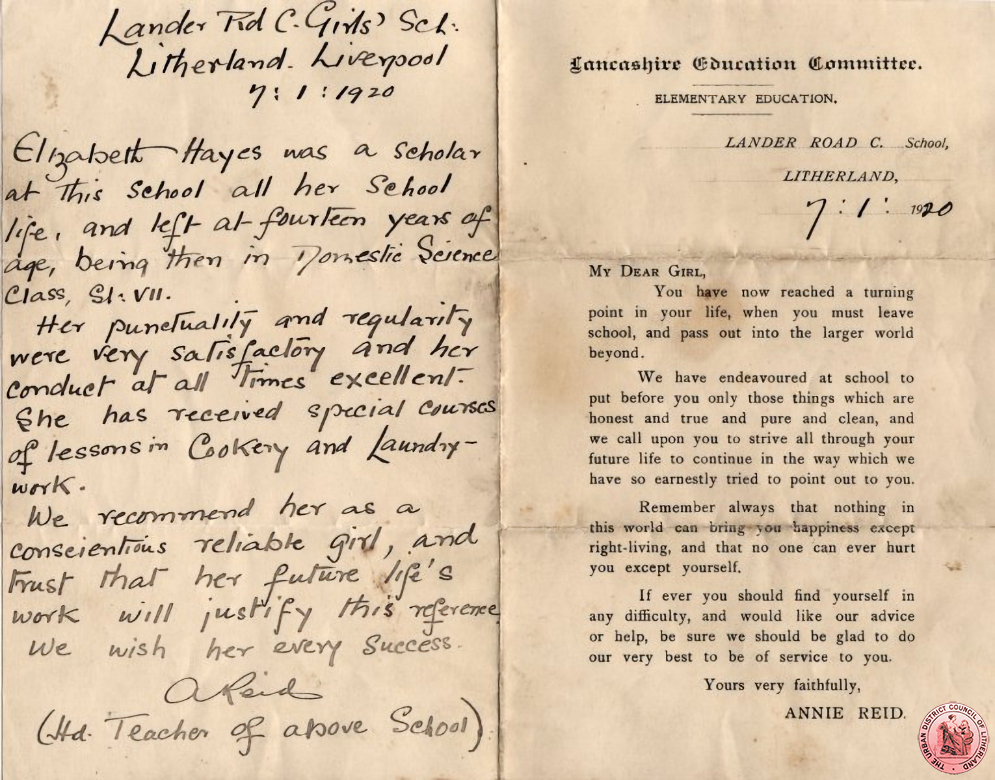 Lander Rd C. Girls' Sch:
Litherland. Liverpool
7 : 1 : 1920
Elizabeth Hayes was a scholar
at this school all her School
life, and left at fourteen years of
age, being then in Domestic Science
Class, St: VII.
Her punctuality and regularity
were very satisfactory and her
conduct at all times excellent.
She has received special courses
of lessons in Cookery and Laundry-
work.
We recommend her as a
conscientious reliable girl, and
trust that her future life's
work will justify this reference
We wish her every Success.
A Reid
(Hd. Teacher of above School)
Lancashire Education Committee.
ELEMENTARY EDUCATION.
LANDER ROAD C. School,
LITHERLAND,
7 : 1 : 1920
MY DEAR GIRL,
You have now reached a turning
point in your life, when you must leave
school, and pass out into the larger world
beyond.
We have endeavoured at school to
put before you only those things which are
honest and true and pure and clean, and
we call upon you to strive all through your
future life to continue in the way which we
have so earnestly tried to point out to you.
Remember always that nothing in
this world can bring you happiness except
right-living, and that no one can ever hurt
you except yourself.
If ever you should find yourself in
any difficulty, and would like our advice
or help, be sure we should be glad to do
our very best to be of service to you.
Yours very faithfully,
ANNIE REID.
THE URBAN DISTRICT COUNCIL OF LITHERLAND